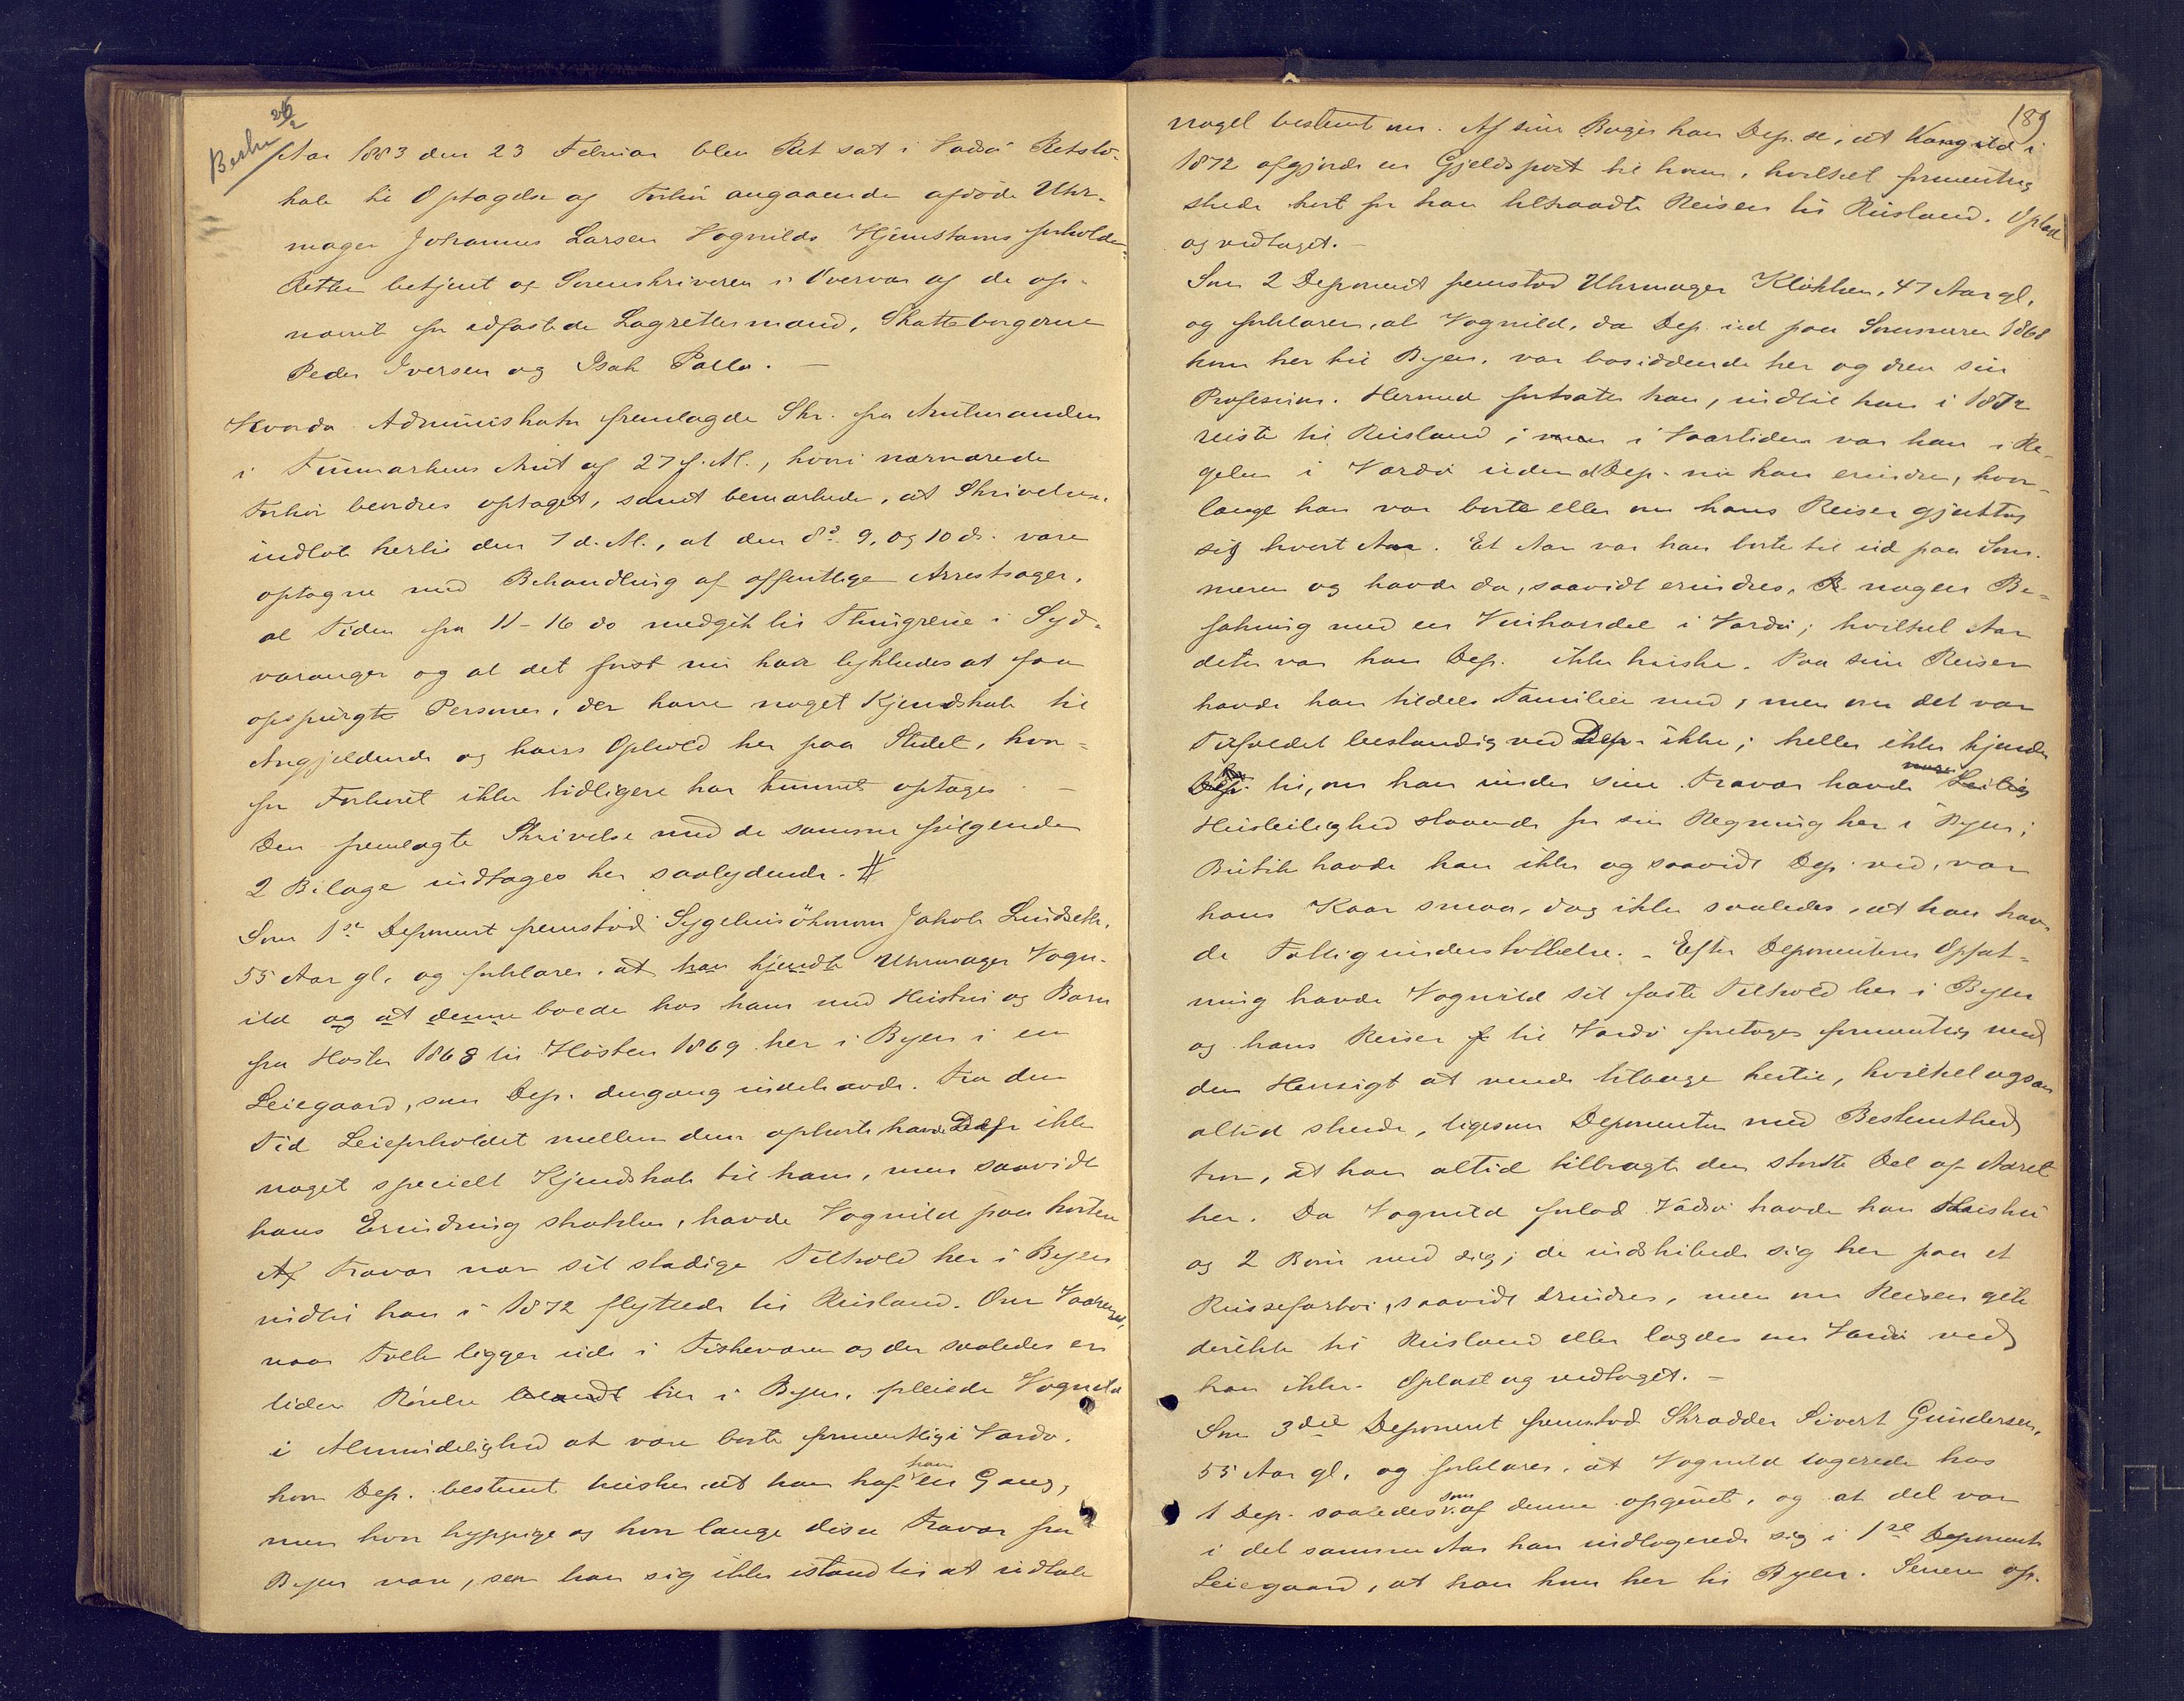 26/2
Beskr
Aar 1883 den 23 Februar blev Ret sat i Vadsö Retslo-
kale til Optagelse af Forhör angaaende afdöde Uhr-
mager Johannes Larsen Vognilds Hjemstavns forholde.
Retten betjent af Sorenskriveren i Overvær af de op-
nævnt for edfæstede Lagrettesmænd, Skatteborgerne
Peder Iversen og Isak Pallo. —
Hvorda Administrator fremlagde Skr. fra Amtmanden
i Finmarkens Amt af 27 f. M., hvori nærværende
Forhör beordres optaget, samt bemærkede, at Skrivelsen
indlöb hertil den 7 d. M., at den 8de 9, og 10 ds. vare
optagne med Behandling af offentlige Arrestsager,
at Tiden fra 11-16 ds medgik til Thingreise i Syd-
varanger og at det først nu har lykkedes at faa
opspurgt Personer, der have noget Kjendskab til
Angjeldende og hans Ophold her paa Stedet, hvor-
for Forhöret ikke tidligere har kunnet optages. —
Den fremlagte Skrivelse med de samme fölgende
2 Bilage indtages her saalydende. #
Som 1ste Deponent fremstod Sygehusökonom Jakob Lindseth,
55 Aar gl. og forklarer, at han kjendte Uhrmager Vogn-
ild og at denne boede hos ham med Hustru og Barn
fra Hösten 1868 til Hösten 1869 her i Byen i en
Leiegaard, som Dep. dengang indehavde. Fra den
Tid Leieforholdet mellem dem ophörte havde Dep ikke
noget specielt Kjendskab til ham, men saavidt
hans Erindring strækker, havde Vognild paa kortere
Af Fravær nær sit stadige Tilhold her i Byen
indtil han i 1872 flyttede til Rusland. Om Vaaren,
naar Folk ligger ude i Fiskevær og der saaledes er
liden Rörelse blandt her i Byen, pleiede Vognild
i Almindelighed at være borte formentlig i Vardö,
hvor Dep. bestemt husker at han traf ham en Gang,
men hvor hyppige og hvor lange disse Fravær fra
Byen vare, ser han sig ikke istand til at udtale
189
noget bestemt om. Af sine Böger han Dep. se, at Vognild i
1872 afgjorde en Gjeldspost til ham, hvilket formentlig
skede kort för han tiltraadte Reisen til Rusland. Oplæst
og vedtaget. —
Som 2 Deponent fremstod Uhrmager Klökken, 47 Aar gl.
og forklarer, at Vognild, da Dep. ud paa Sommeren 1868
kom her til Byen, var bosiddende her og drev sin
Profession. Hermed fortsatte han, indtil han i 1872
reiste til Rusland; men i Vaartiden var han i Re-
gelen i Vardö uden at Dep. nu kan erindre, hvor-
længe han var borte eller om hans Reiser gjentog
sig hvert Aar. Et Aar var han borte til ud paa Som-
meren og havde da, saavidt erindres, nogen Be-
fatning med en Vinhandel i Vardö; hvilket Aar
dette var kan Dep. ikke huske. Paa sine Reiser
havde han tildels Familien med, men om det var
Tilfældet bestandig ved Dep. ikke; heller ikke kjender
han til, om han under sine Fravær havde nogen Leilig
Husleilighed staaende for sin Regning her i Byen;
Butik havde han ikke og saavidt Dep. ved, var
hans Kaar smaa, dog ikke saaledes, at han hav-
de Fattigunderstöttelse. - Efter Deponentens Opfat-
ning havde Vognild sit faste Tilhold her i Byen
og hans Reiser til Vardö foretoges formentlig med
den Hensigt at vende tilbage hertil, hvilket ogsaa
altid skede, ligesom Deponenten med Bestemthed
tror, at han altid tilbragte den störste Del af Aaret
her. Da Vognild forlod Vadsö havde han Hustru
og 2 Börn med sig; de indskibede sig her paa et
Russefartöi, saavidt erindres, men om Reisen gik
direkte til Rusland eller lagdes om Vardö ved
han ikke. Oplæst og vedtaget. —
Som 3die Deponent fremstod Skrædder Sivert Gundersen,
55 Aar gl. og forklarer, at Vognild logerede hos
1 Dep. saaledes som af denne opgivet, og at det var
i det samme Aar han indlogerede sig i 1ste Deponents
Leiegaard, at han kom her til Byen. Senere op-